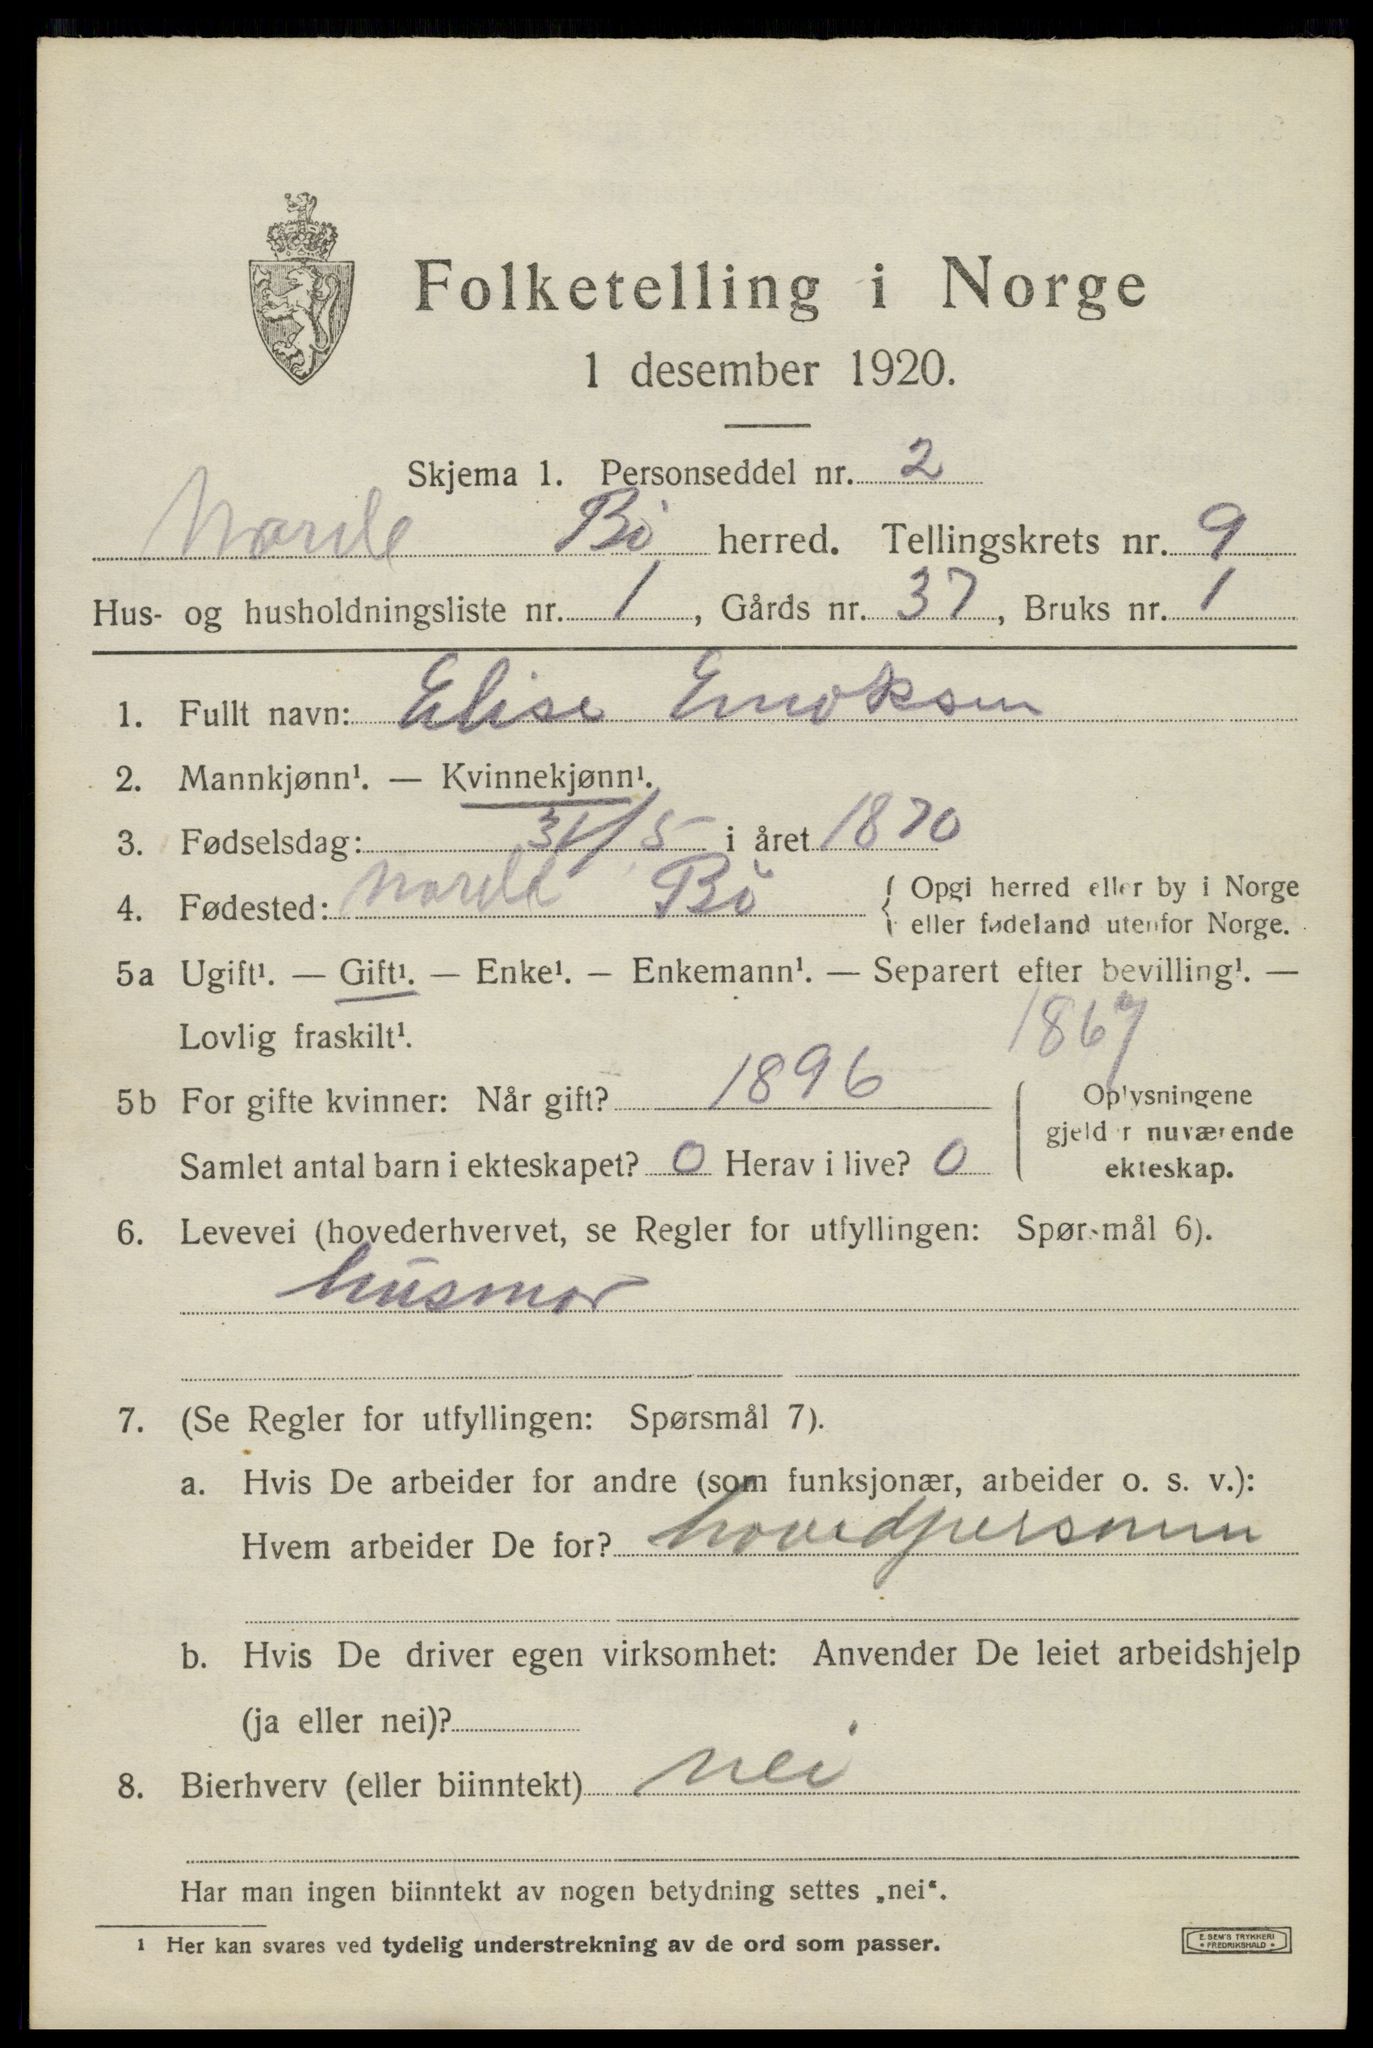 Folketelling i Norge
1 desember 1920.
Skjema 1. Personseddel nr. 2
Bø herred. Tellingskrets nr. 9
Hus- og husholdningsliste nr. 1, Gårds nr. 37, Bruks nr. 1
1. Fullt navn: Elise Enoksen
2. Mannkjønn¹. — Kvinnekjønn¹.
3. Fødselsdag: 31/5 i året 1870
4. Fødested: Bø { Opgi herred eller by i Norge
eller fødeland utenfor Norge.
5a Ugift¹. — Gift¹. — Enke¹. — Enkemann¹. — Separert efter bevilling¹. —
Lovlig fraskilt¹.
1867
5b For gifte kvinner: Når gift? 1896
Samlet antal barn i ekteskapet? 0 Herav i live? 0
Oplysningene
gjelder nuværende
ekteskap.
6. Levevei (hovederhvervet, se Regler for utfyllingen: Spørsmål 6).
husmor
7. (Se Regler for utfyllingen: Spørsmål 7).
a. Hvis De arbeider for andre (som funksjonær, arbeider o. s. v.):
Hvem arbeider De for? hovedpersonen
b. Hvis De driver egen virksomhet: Anvender De leiet arbeidshjelp
(ja eller nei)?
8. Bierhverv (eller biinntekt) nei
Har man ingen biinntekt av nogen betydning settes „nei“.
¹ Her kan svares ved tydelig understrekning av de ord som passer.
E. SEM'S TRYKKERI
• FREDRIKSHALD •